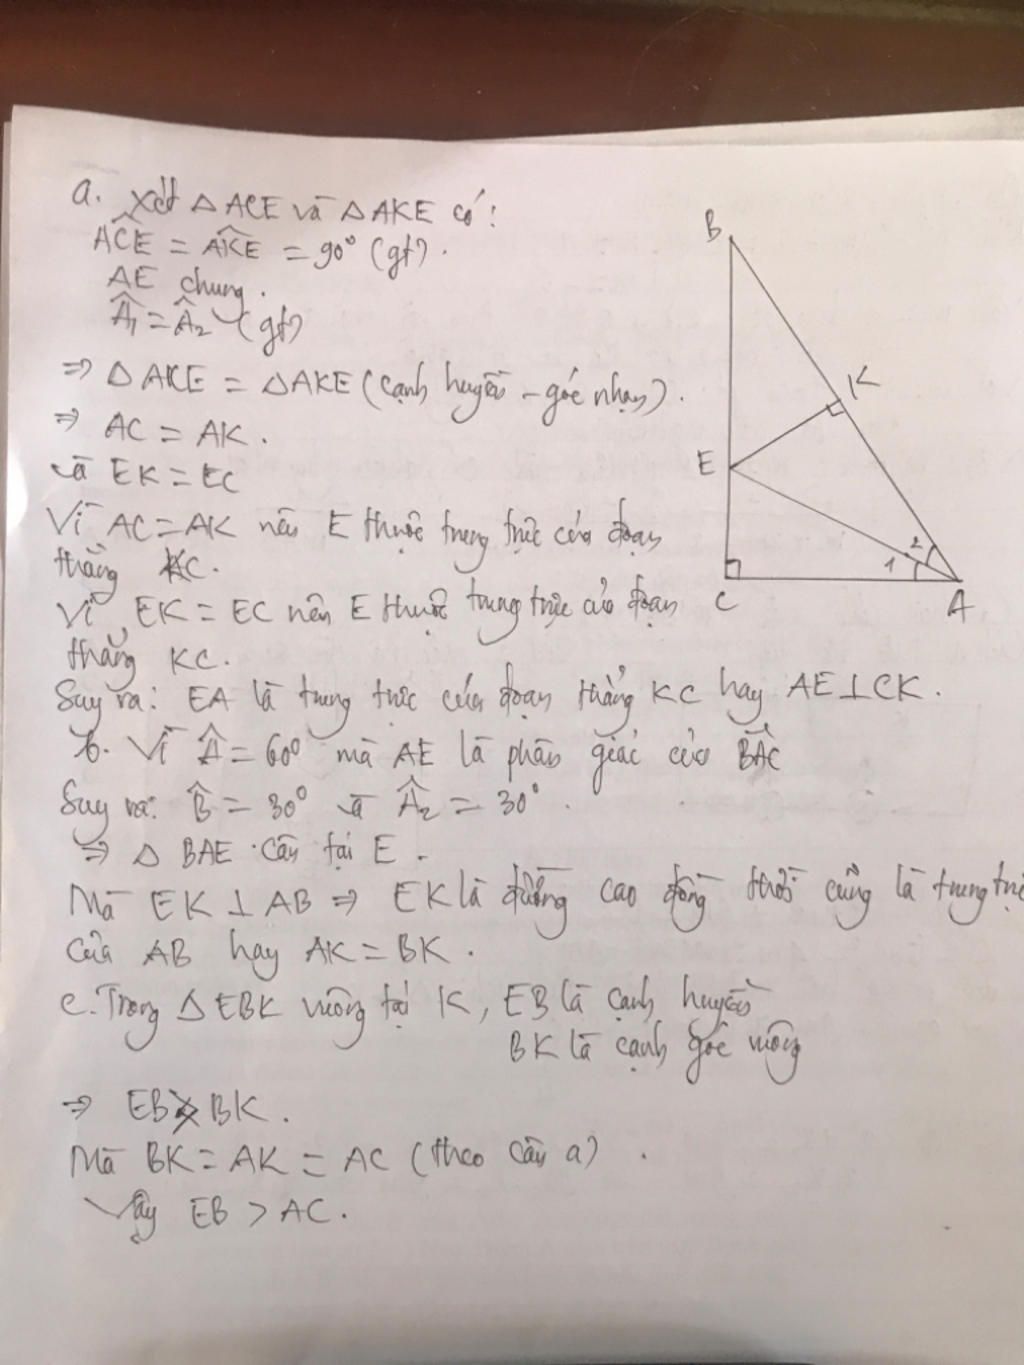 a. Xét △ ACE và △ AKE có:
ACÊ = AK̂E = 90° (gt).
AE chung.
Â₁ = Â₂ (gt)
⇒ △ ACE = △ AKE (cạnh huyền - góc nhọn).
⇒ AC = AK.
và EK = EC
Vì AC = AK nên E thuộc trung trực của đoạn
thẳng KC.
Vì EK = EC nên E thuộc trung trực của đoạn
thẳng KC.
Suy ra: EA là trung trực của đoạn thẳng KC hay AE ⊥ CK.
b. Vì Â = 60° mà AE là phân giác của BÂC
Suy ra: B̂ = 30° và Â₂ = 30°.
⇒ △ BAE cân tại E.
Mà EK ⊥ AB ⇒ EK là đường cao đồng thời cũng là trung trực
của AB hay AK = BK.
c. Trong △ EBK vuông tại K, EB là cạnh huyền
BK là cạnh góc vuông
⇒ EB > BK.
Mà BK = AK = AC (theo câu a).
Vậy EB > AC.
B
K
E
2
1
C
A